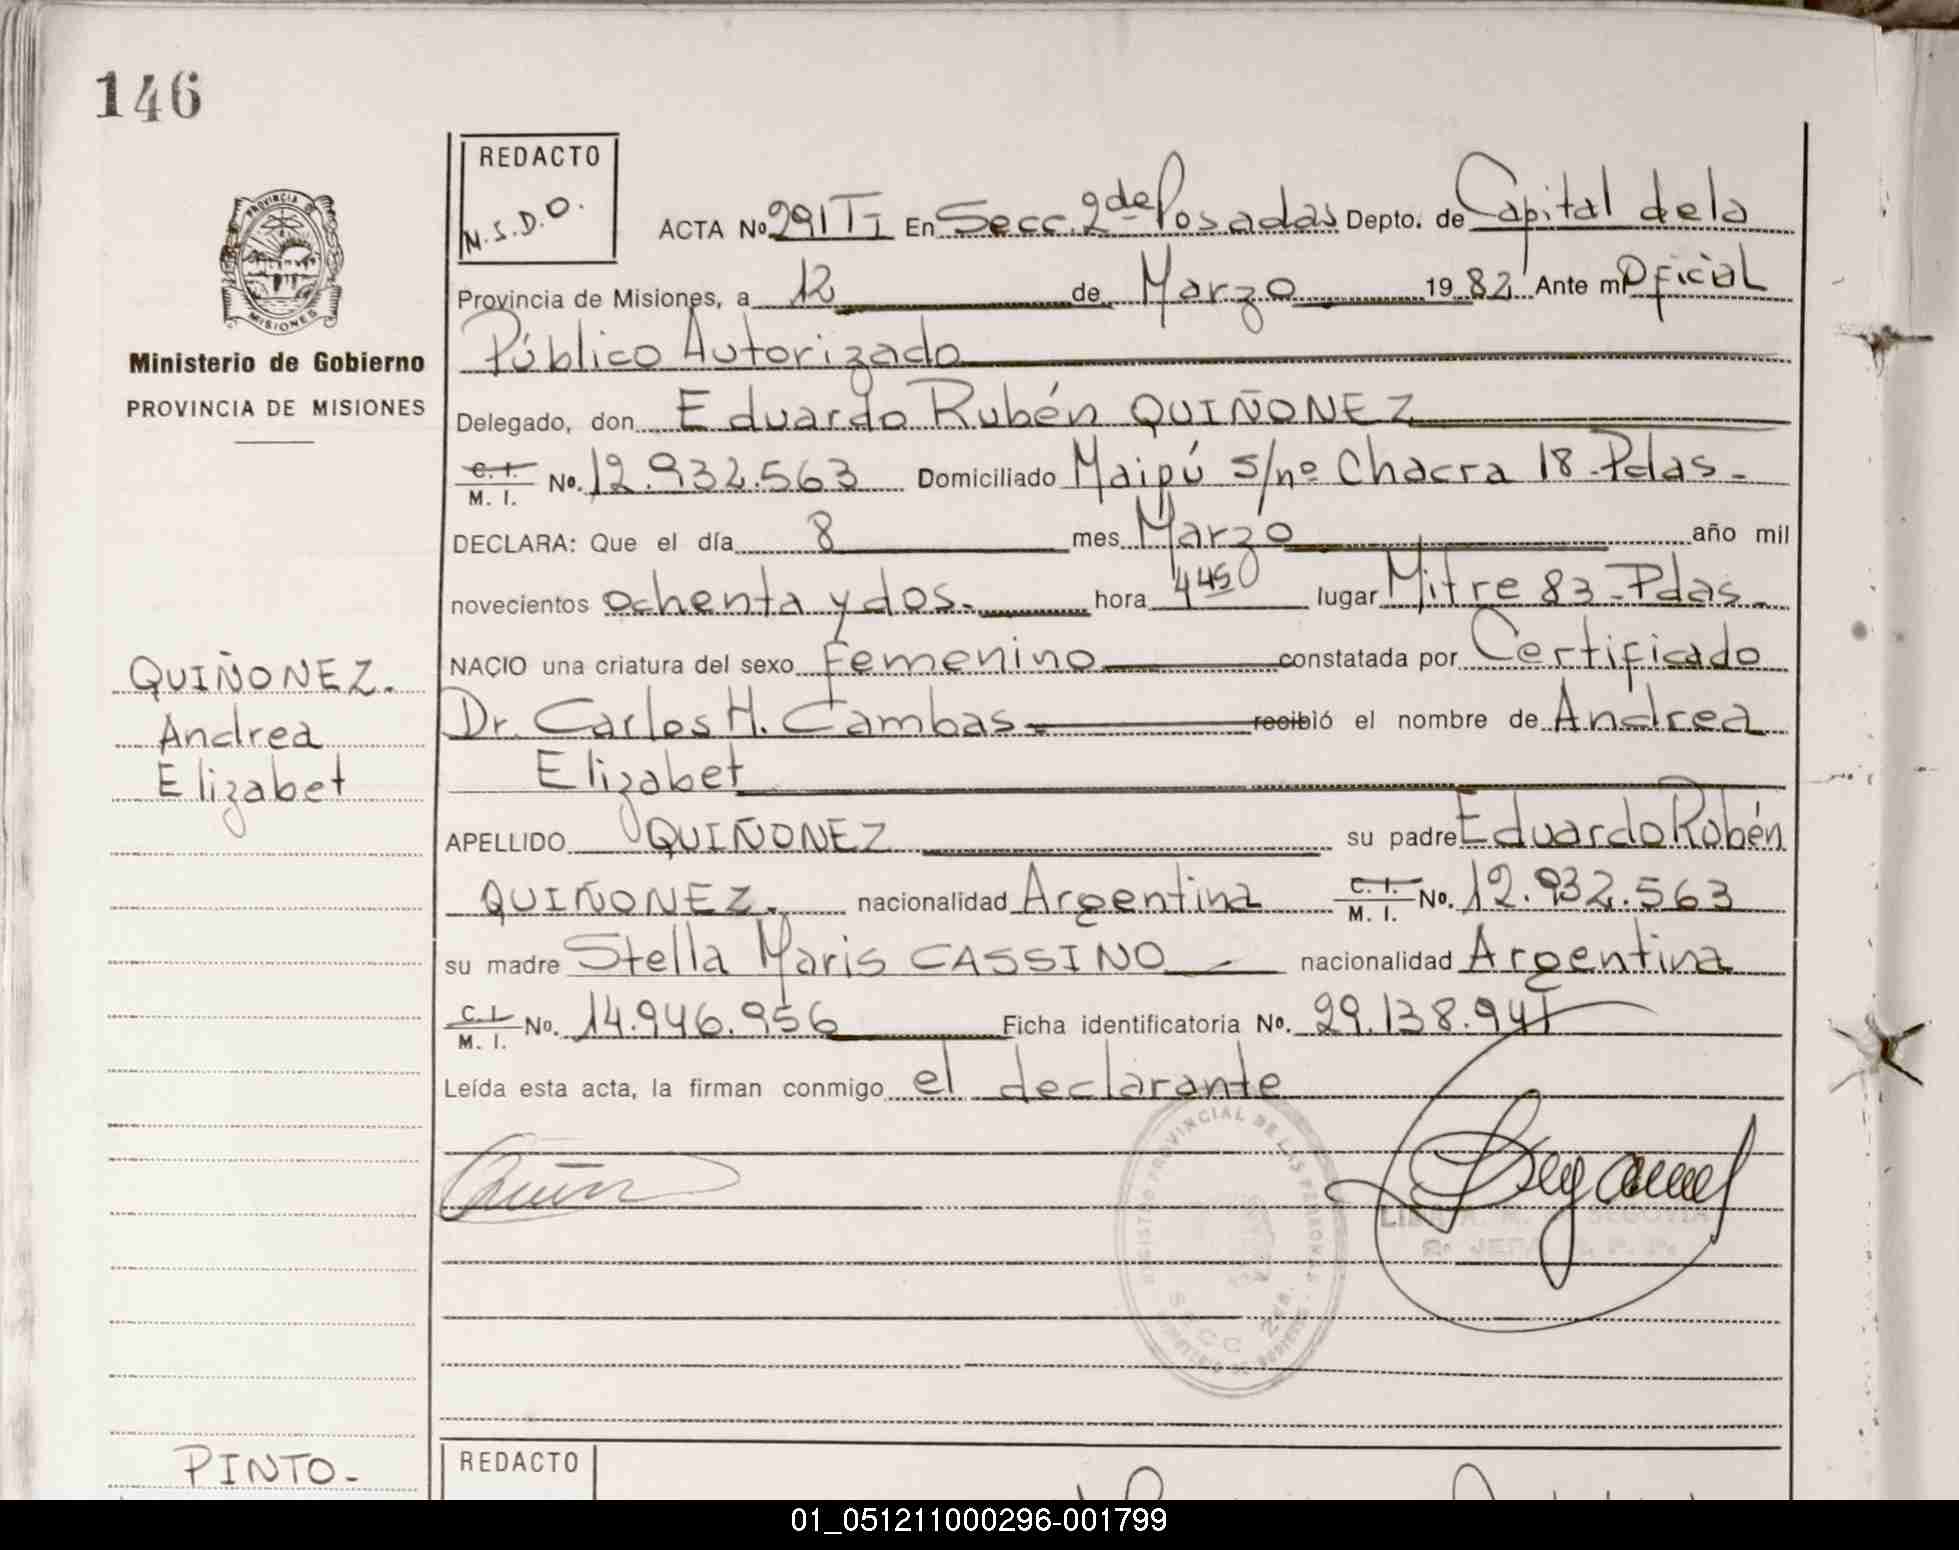 146
REDACTO
M.S.D.O.
PROVINCIA D
MISIONES
ACTA No 291 TI En Secc. 2da Posadas Depto. de Capital de la
Provincia de Misiones, a 12 de Marzo 1982 Ante mi Oficial
Público Autorizado
Ministerio de Gobierno
PROVINCIA DE MISIONES
Delegado, don Eduardo Rubén QUIÑONEZ
C. I. M. I. No. 12.932.563 Domiciliado Maipú s/nº Chacra 18 - Pdas -
DECLARA: Que el día 8 mes Marzo año mil
novecientos ochenta y dos. hora 4 45 lugar Mitre 83 - Pdas -
NACIO una criatura del sexo Femenino constatada por Certificado
Dr. Carlos H. Cambas - recibió el nombre de Andrea
Elizabet
QUIÑONEZ.
Andrea
Elizabet
APELLIDO QUIÑONEZ su padre Eduardo Rubén
QUIÑONEZ. nacionalidad Argentina C. I. M. I. No. 12.932.563
su madre Stella Maris CASSINO nacionalidad Argentina
C. I. M. I. No. 14.946.956 Ficha identificatoria No. 29.138.941
Leída esta acta, la firman conmigo el declarante
REGISTRO PROVINCIAL DE LAS PERSONAS
SECC 2da.
MINISTERIO DE GOBIERNO
SEGOVIA
JEFA R. P. P.
PINTO -
REDACTO
01_051211000296-001799